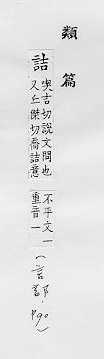 類篇
詰
喫吉切說文問也
又丘傑切喬詰意
不平文一
重音一
(言部, P90)